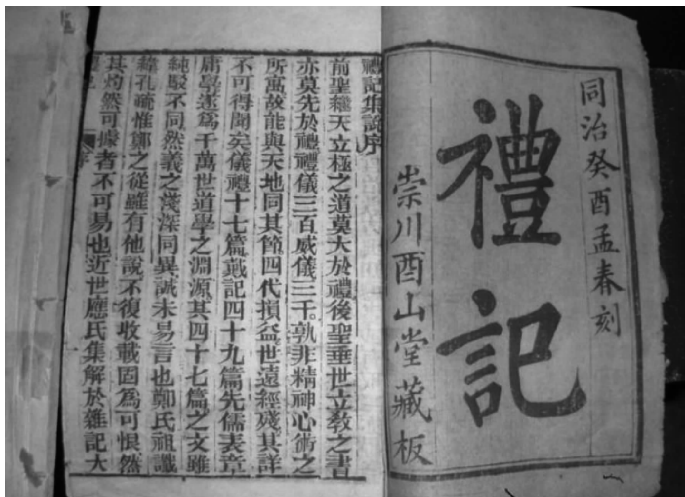 同治癸酉孟春刻
禮記
崇川酉山堂藏板
禮記集說序
前聖繼天立極之道莫大於禮後聖垂世立教之書
亦莫先於禮禮儀三百威儀三千。孰非精神心術之
所寓故能與天地同其節四代損益世遠經殘其詳
不可得聞矣儀禮十七篇戴記四十九篇先儒表章
庸學遂爲千萬世道學之淵源其四十七篇之文雖
純駁不同然義之淺深同異誠未易言也鄭氏祖讖
緯孔疏惟鄭之從雖有他說不復收載固為可恨然
其灼然可據者不可易也近世應氏集解於雜記大
序